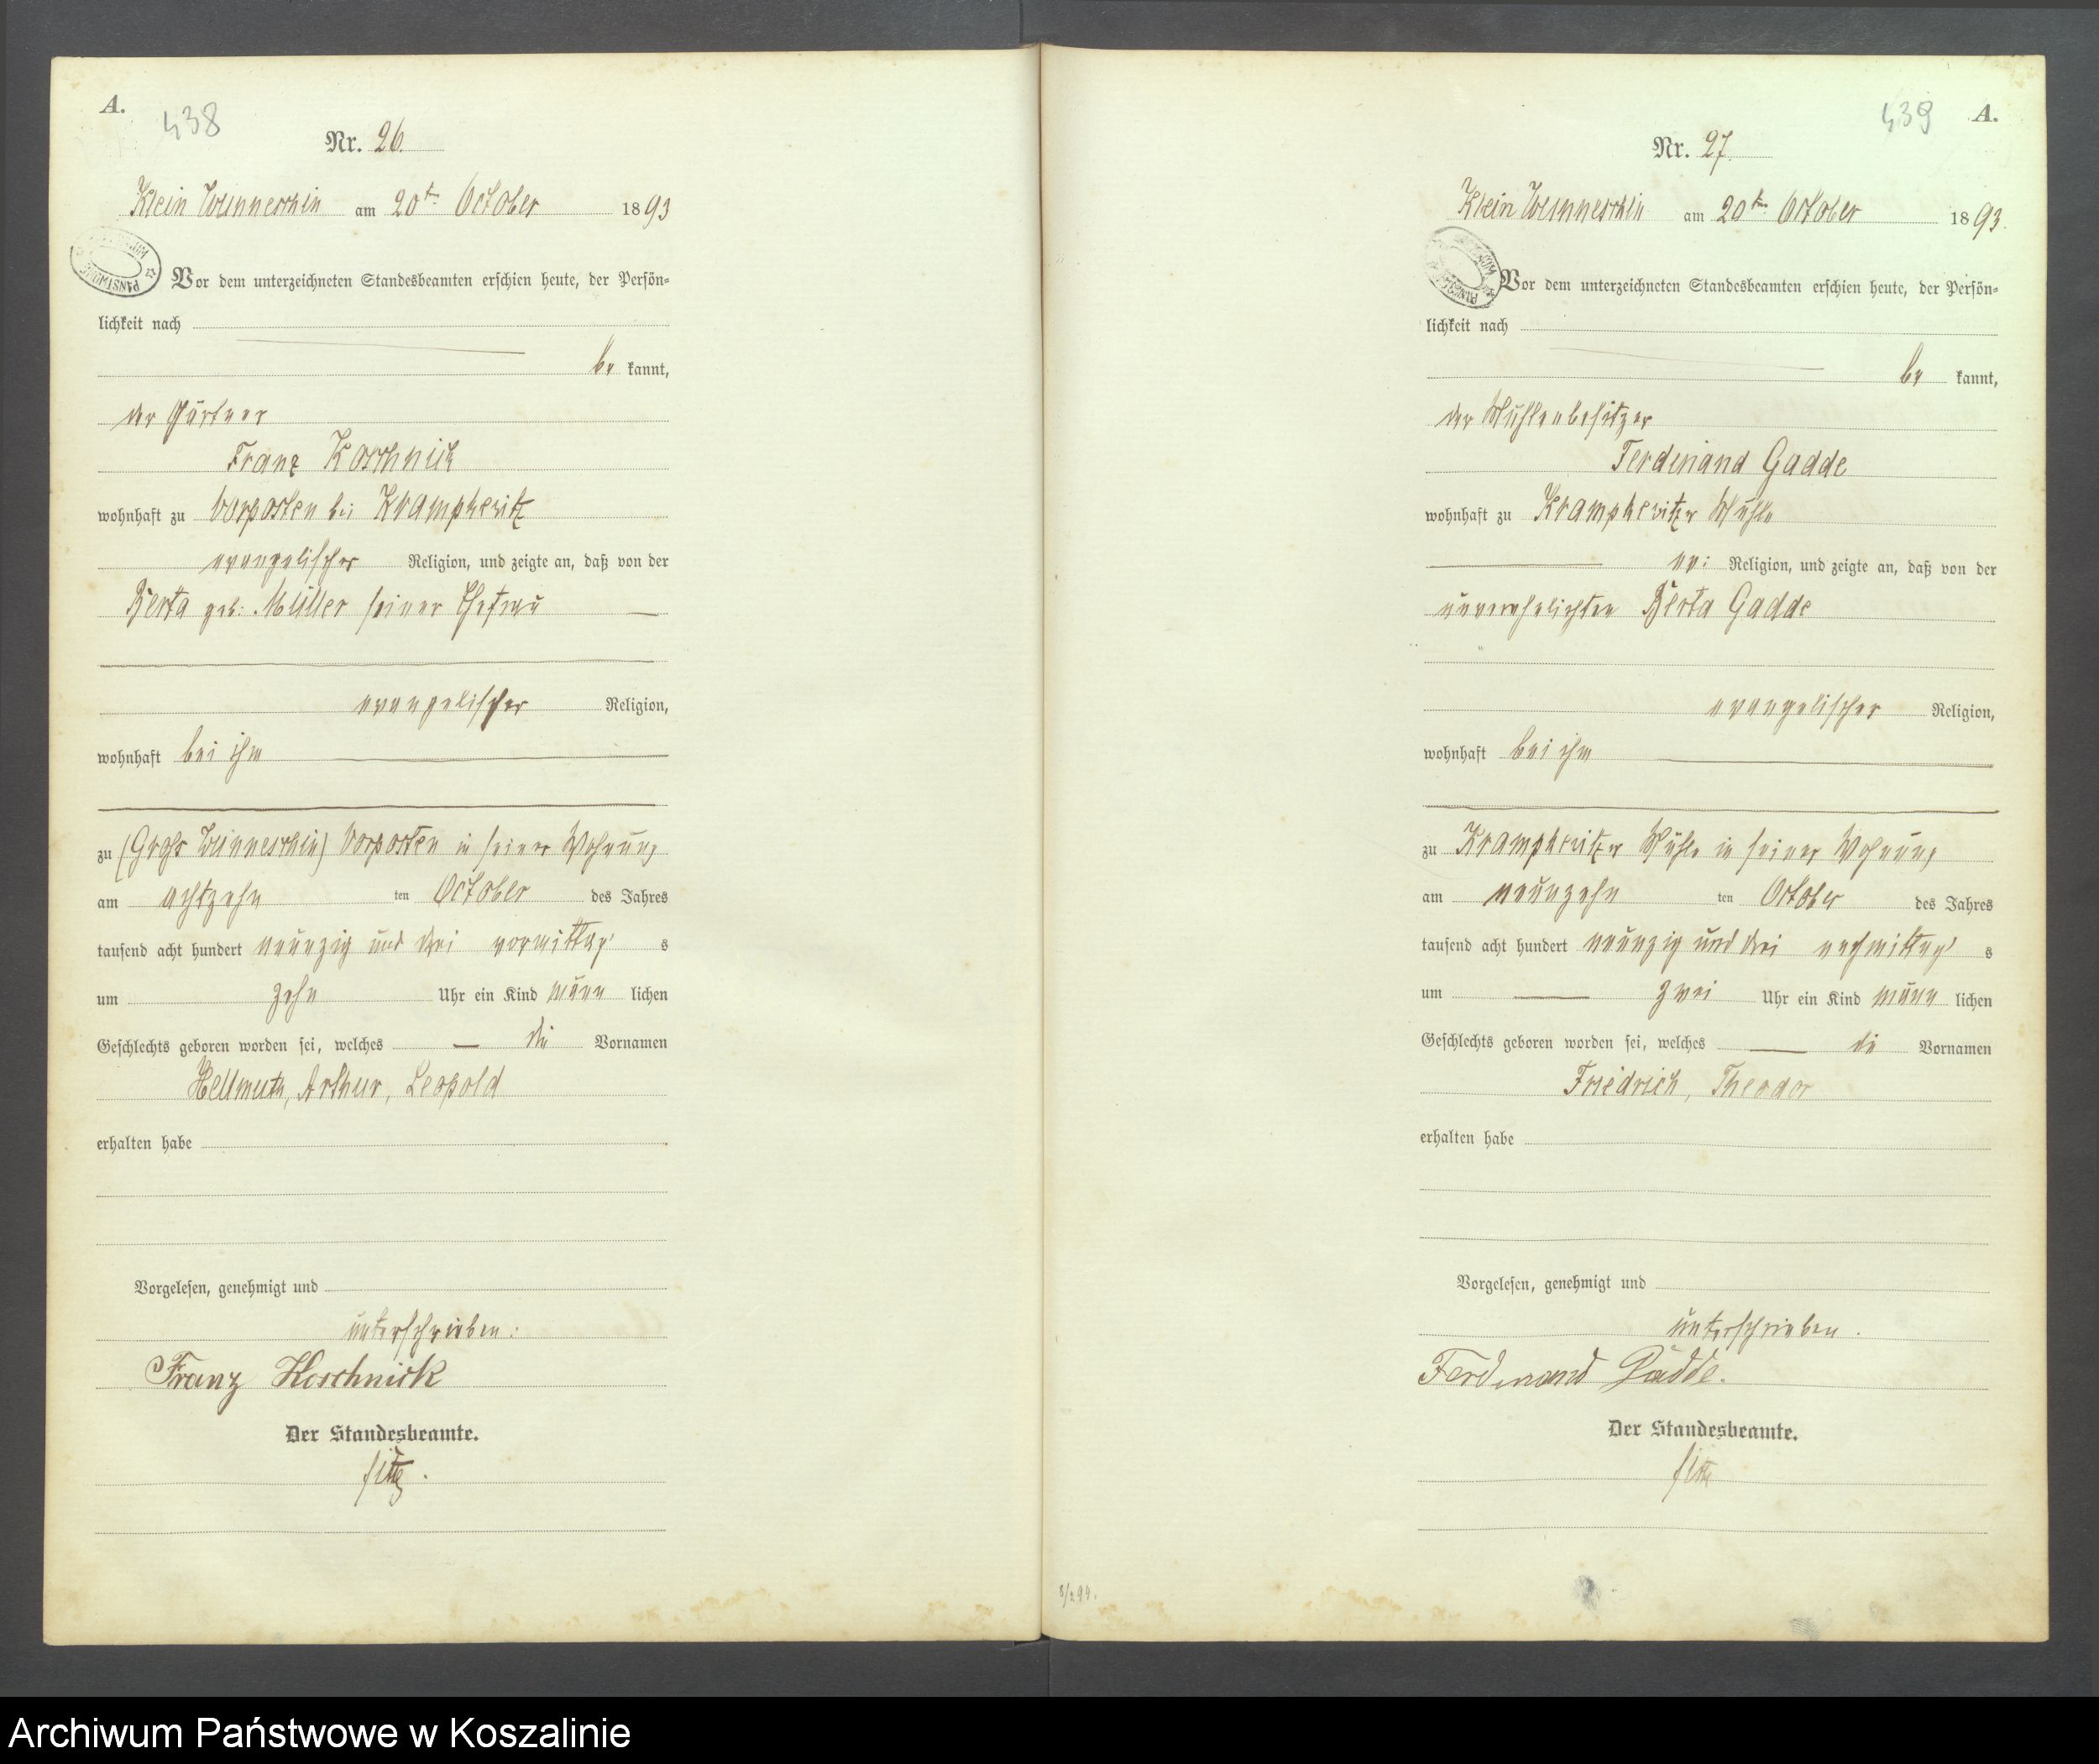 A.
438
Nr. 26.
Klein Wunneschin am 20ten October 1893
Vor dem unterzeichneten Standesbeamten erschien heute, der Persön-
lichkeit nach
be kannt,
der Gärtner
Franz Koschnick
wohnhaft zu Vorposten bei Krampkewitz
evangelischer Religion, und zeigte an, daß von der
Berta geb: Müller seiner Ehefrau
evangelischer Religion,
wohnhaft bei ihm
zu (Groß Wunneschin) Vorposten in seiner Wohnung
am achtzehn ten October des Jahres
tausend acht hundert neunzig und drei vormittag s
um zehn Uhr ein Kind männ lichen
Geschlechts geboren worden sei, welches die Vornamen
Hellmuth, Arthur, Leopold
erhalten habe
Vorgelesen, genehmigt und
unterschrieben:
Franz Koschnick
Der Standesbeamte.
439
A.
Nr. 27.
Klein Wunneschin am 20ten October 1893.
Vor dem unterzeichneten Standesbeamten erschien heute, der Persön-
lichkeit nach
be kannt,
der Mühlenbesitzer
Ferdinand Gadde
wohnhaft zu Krampkewitzer Mühle
ev: Religion, und zeigte an, daß von der
unverehelichten Berta Gadde
evangelischer Religion,
wohnhaft bei ihm
zu Krampkewitzer Mühle in seiner Wohnung
am neunzehn ten October des Jahres
tausend acht hundert neunzig und drei nachmittag s
um zwei Uhr ein Kind männ lichen
Geschlechts geboren worden sei, welches die Vornamen
Friedrich, Theodor
erhalten habe
Vorgelesen, genehmigt und
unterschrieben.
Ferdinand Gadde.
Der Standesbeamte.
Archiwum Państwowe w Koszalinie